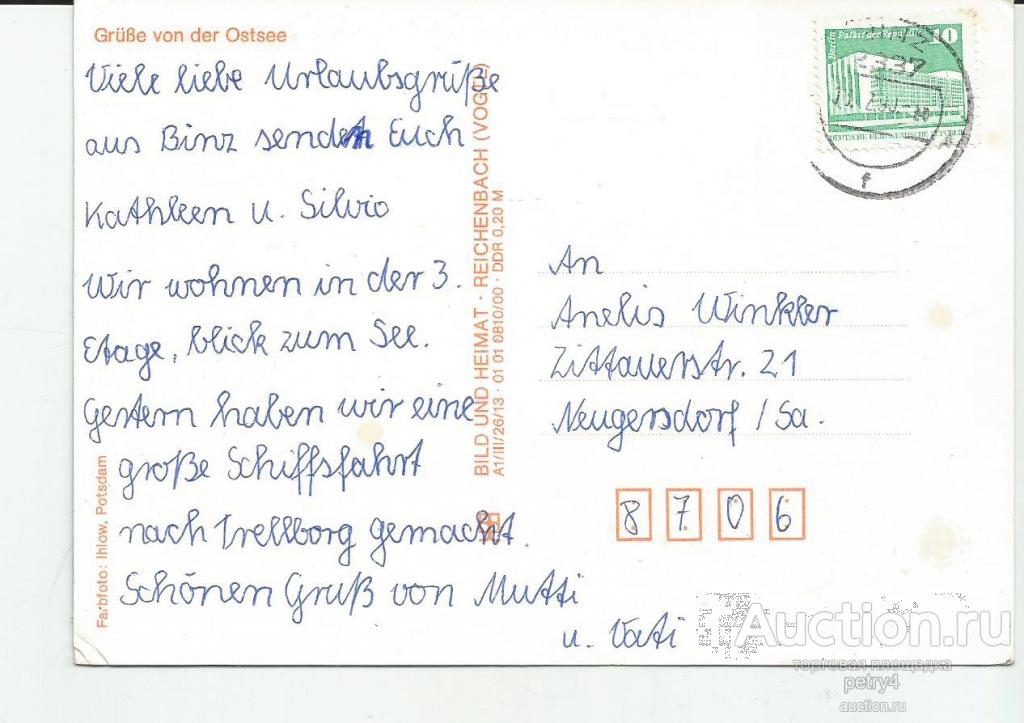 Grüße von der Ostsee
Viele liebe Urlaubsgrüße
aus Binz senden Euch
Kathleen u. Silvio
Wir wohnen in der 3.
Etage, blick zum See.
Gestern haben wir eine
große Schiffsfahrt
nach Trellborg gemacht.
Schönen Gruß von Mutti
u. Vati
Farbfoto: Ihlow, Potsdam
BILD UND HEIMAT · REICHENBACH (VOGTL)
A1/III/26/13 · 01 01 0810/00 · DDR 0,20 M
Berlin Palast der Republik 10
DEUTSCHE DEMOKRATISCHE REPUBLIK
2337
An
Anelis Winkler
Zittauerstr. 21
Neugersdorf / Sa.
8 7 0 6
Auction.ru
торговая площадка
petry4
auction.ru